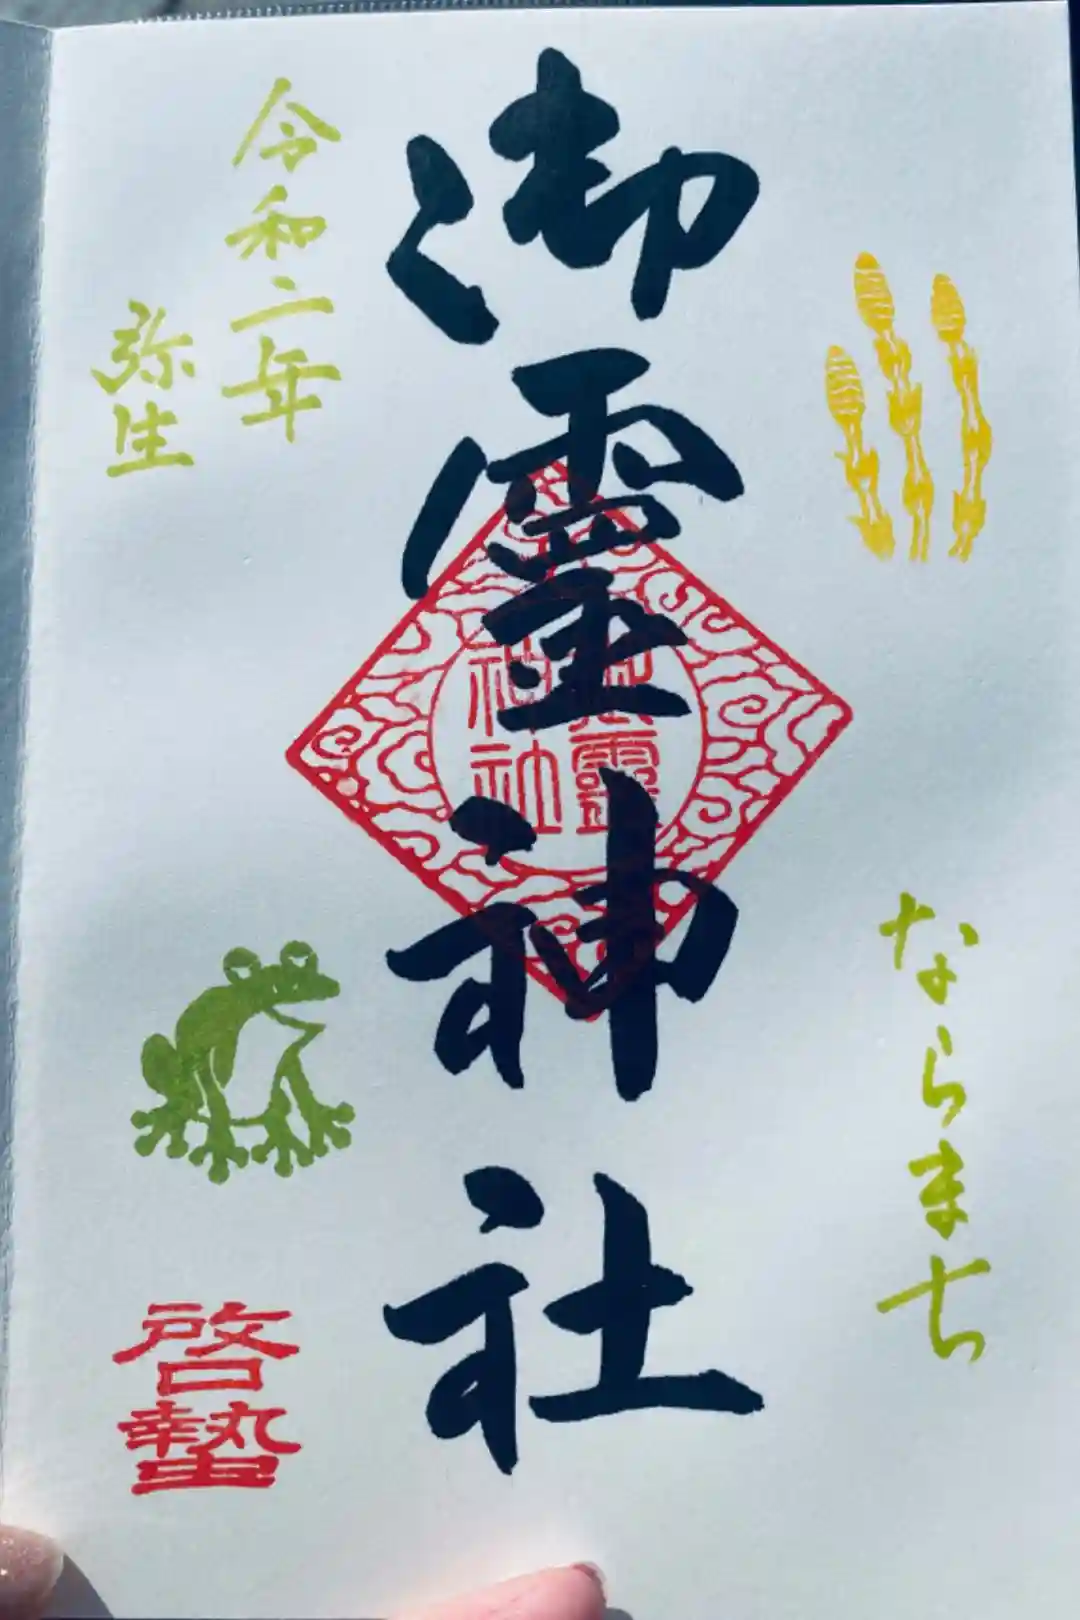 ならまち
御霊神社
御靈
神社
令和二年
弥生
啓蟄